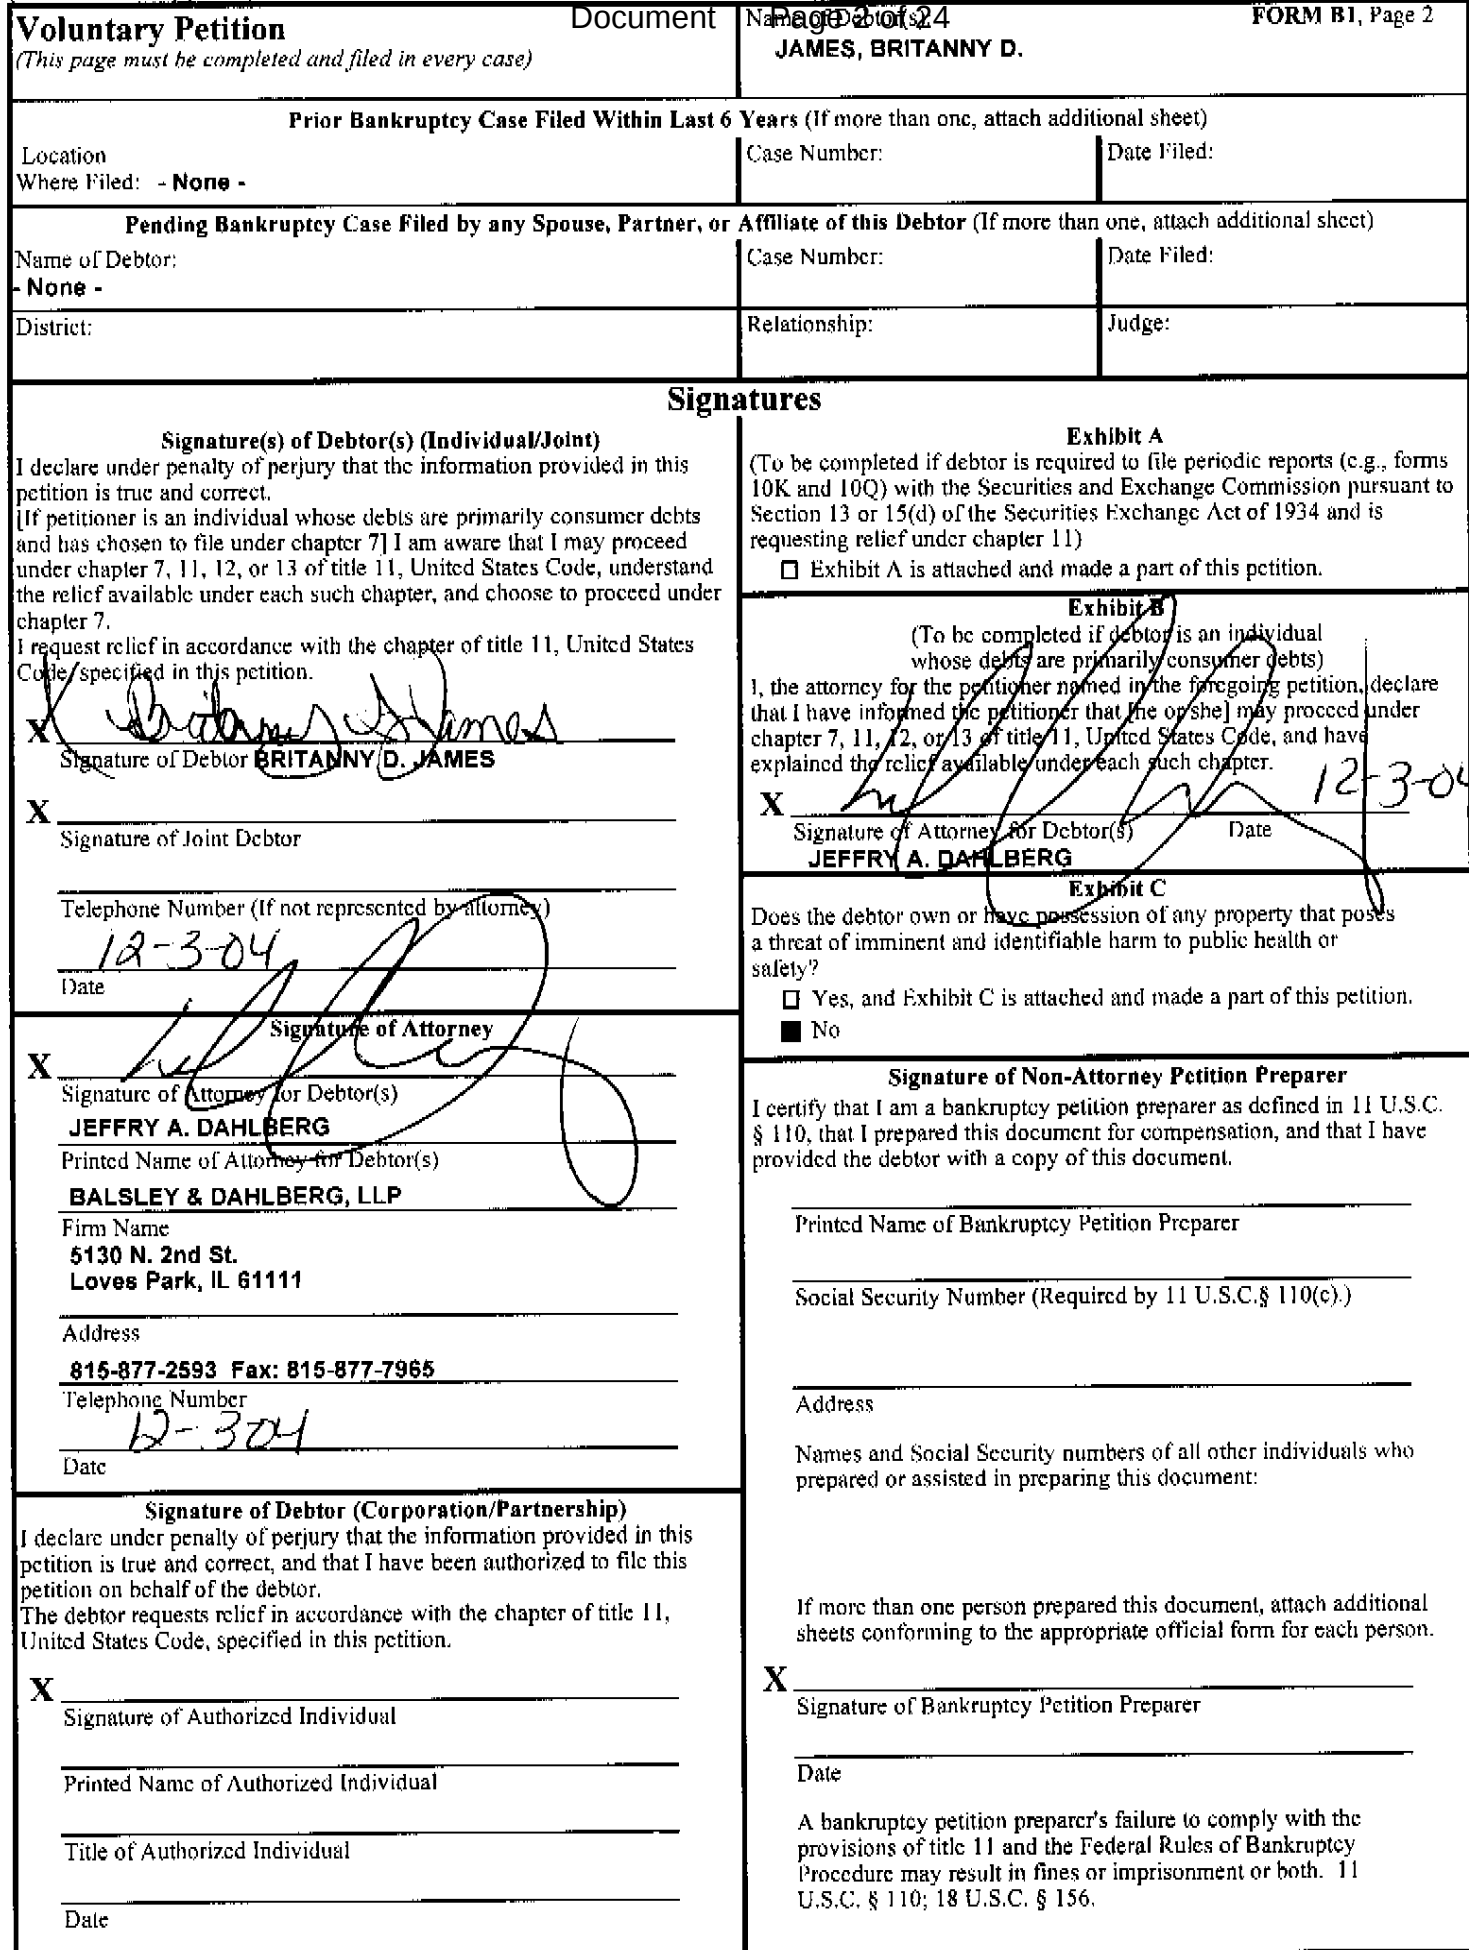 Document Page 2 of 24
Voluntary Petition
(This page must be completed and filed in every case)
Name of Debtor(s):
JAMES, BRITANNY D.
FORM B1, Page 2
Prior Bankruptcy Case Filed Within Last 6 Years (If more than one, attach additional sheet)
Location
Where Filed: - None -
Case Number:
Date Filed:
Pending Bankruptcy Case Filed by any Spouse, Partner, or Affiliate of this Debtor (If more than one, attach additional sheet)
Name of Debtor:
- None -
Case Number:
Date Filed:
District:
Relationship:
Judge:
Signatures
Signature(s) of Debtor(s) (Individual/Joint)
I declare under penalty of perjury that the information provided in this
petition is true and correct.
[If petitioner is an individual whose debts are primarily consumer debts
and has chosen to file under chapter 7] I am aware that I may proceed
under chapter 7, 11, 12, or 13 of title 11, United States Code, understand
the relief available under each such chapter, and choose to proceed under
chapter 7.
I request relief in accordance with the chapter of title 11, United States
Code, specified in this petition.
X Britanny D James
Signature of Debtor BRITANNY D. JAMES
X
Signature of Joint Debtor
Telephone Number (If not represented by attorney)
12-3-04
Date
Signature of Attorney
X
Signature of Attorney for Debtor(s)
JEFFRY A. DAHLBERG
Printed Name of Attorney for Debtor(s)
BALSLEY & DAHLBERG, LLP
Firm Name
5130 N. 2nd St.
Loves Park, IL 61111
Address
815-877-2593 Fax: 815-877-7965
Telephone Number
12-3-04
Date
Signature of Debtor (Corporation/Partnership)
I declare under penalty of perjury that the information provided in this
petition is true and correct, and that I have been authorized to file this
petition on behalf of the debtor.
The debtor requests relief in accordance with the chapter of title 11,
United States Code, specified in this petition.
X
Signature of Authorized Individual
Printed Name of Authorized Individual
Title of Authorized Individual
Date
Exhibit A
(To be completed if debtor is required to file periodic reports (e.g., forms
10K and 10Q) with the Securities and Exchange Commission pursuant to
Section 13 or 15(d) of the Securities Exchange Act of 1934 and is
requesting relief under chapter 11)
☐ Exhibit A is attached and made a part of this petition.
Exhibit B
(To be completed if debtor is an individual
whose debts are primarily consumer debts)
I, the attorney for the petitioner named in the foregoing petition, declare
that I have informed the petitioner that [he or she] may proceed under
chapter 7, 11, 12, or 13 of title 11, United States Code, and have
explained the relief available under each such chapter.
X 12-3-04
Signature of Attorney for Debtor(s) Date
JEFFRY A. DAHLBERG
Exhibit C
Does the debtor own or have possession of any property that poses
a threat of imminent and identifiable harm to public health or
safety?
☐ Yes, and Exhibit C is attached and made a part of this petition.
■ No
Signature of Non-Attorney Petition Preparer
I certify that I am a bankruptcy petition preparer as defined in 11 U.S.C.
§ 110, that I prepared this document for compensation, and that I have
provided the debtor with a copy of this document.
Printed Name of Bankruptcy Petition Preparer
Social Security Number (Required by 11 U.S.C.§ 110(c).)
Address
Names and Social Security numbers of all other individuals who
prepared or assisted in preparing this document:
If more than one person prepared this document, attach additional
sheets conforming to the appropriate official form for each person.
X
Signature of Bankruptcy Petition Preparer
Date
A bankruptcy petition preparer's failure to comply with the
provisions of title 11 and the Federal Rules of Bankruptcy
Procedure may result in fines or imprisonment or both. 11
U.S.C. § 110; 18 U.S.C. § 156.